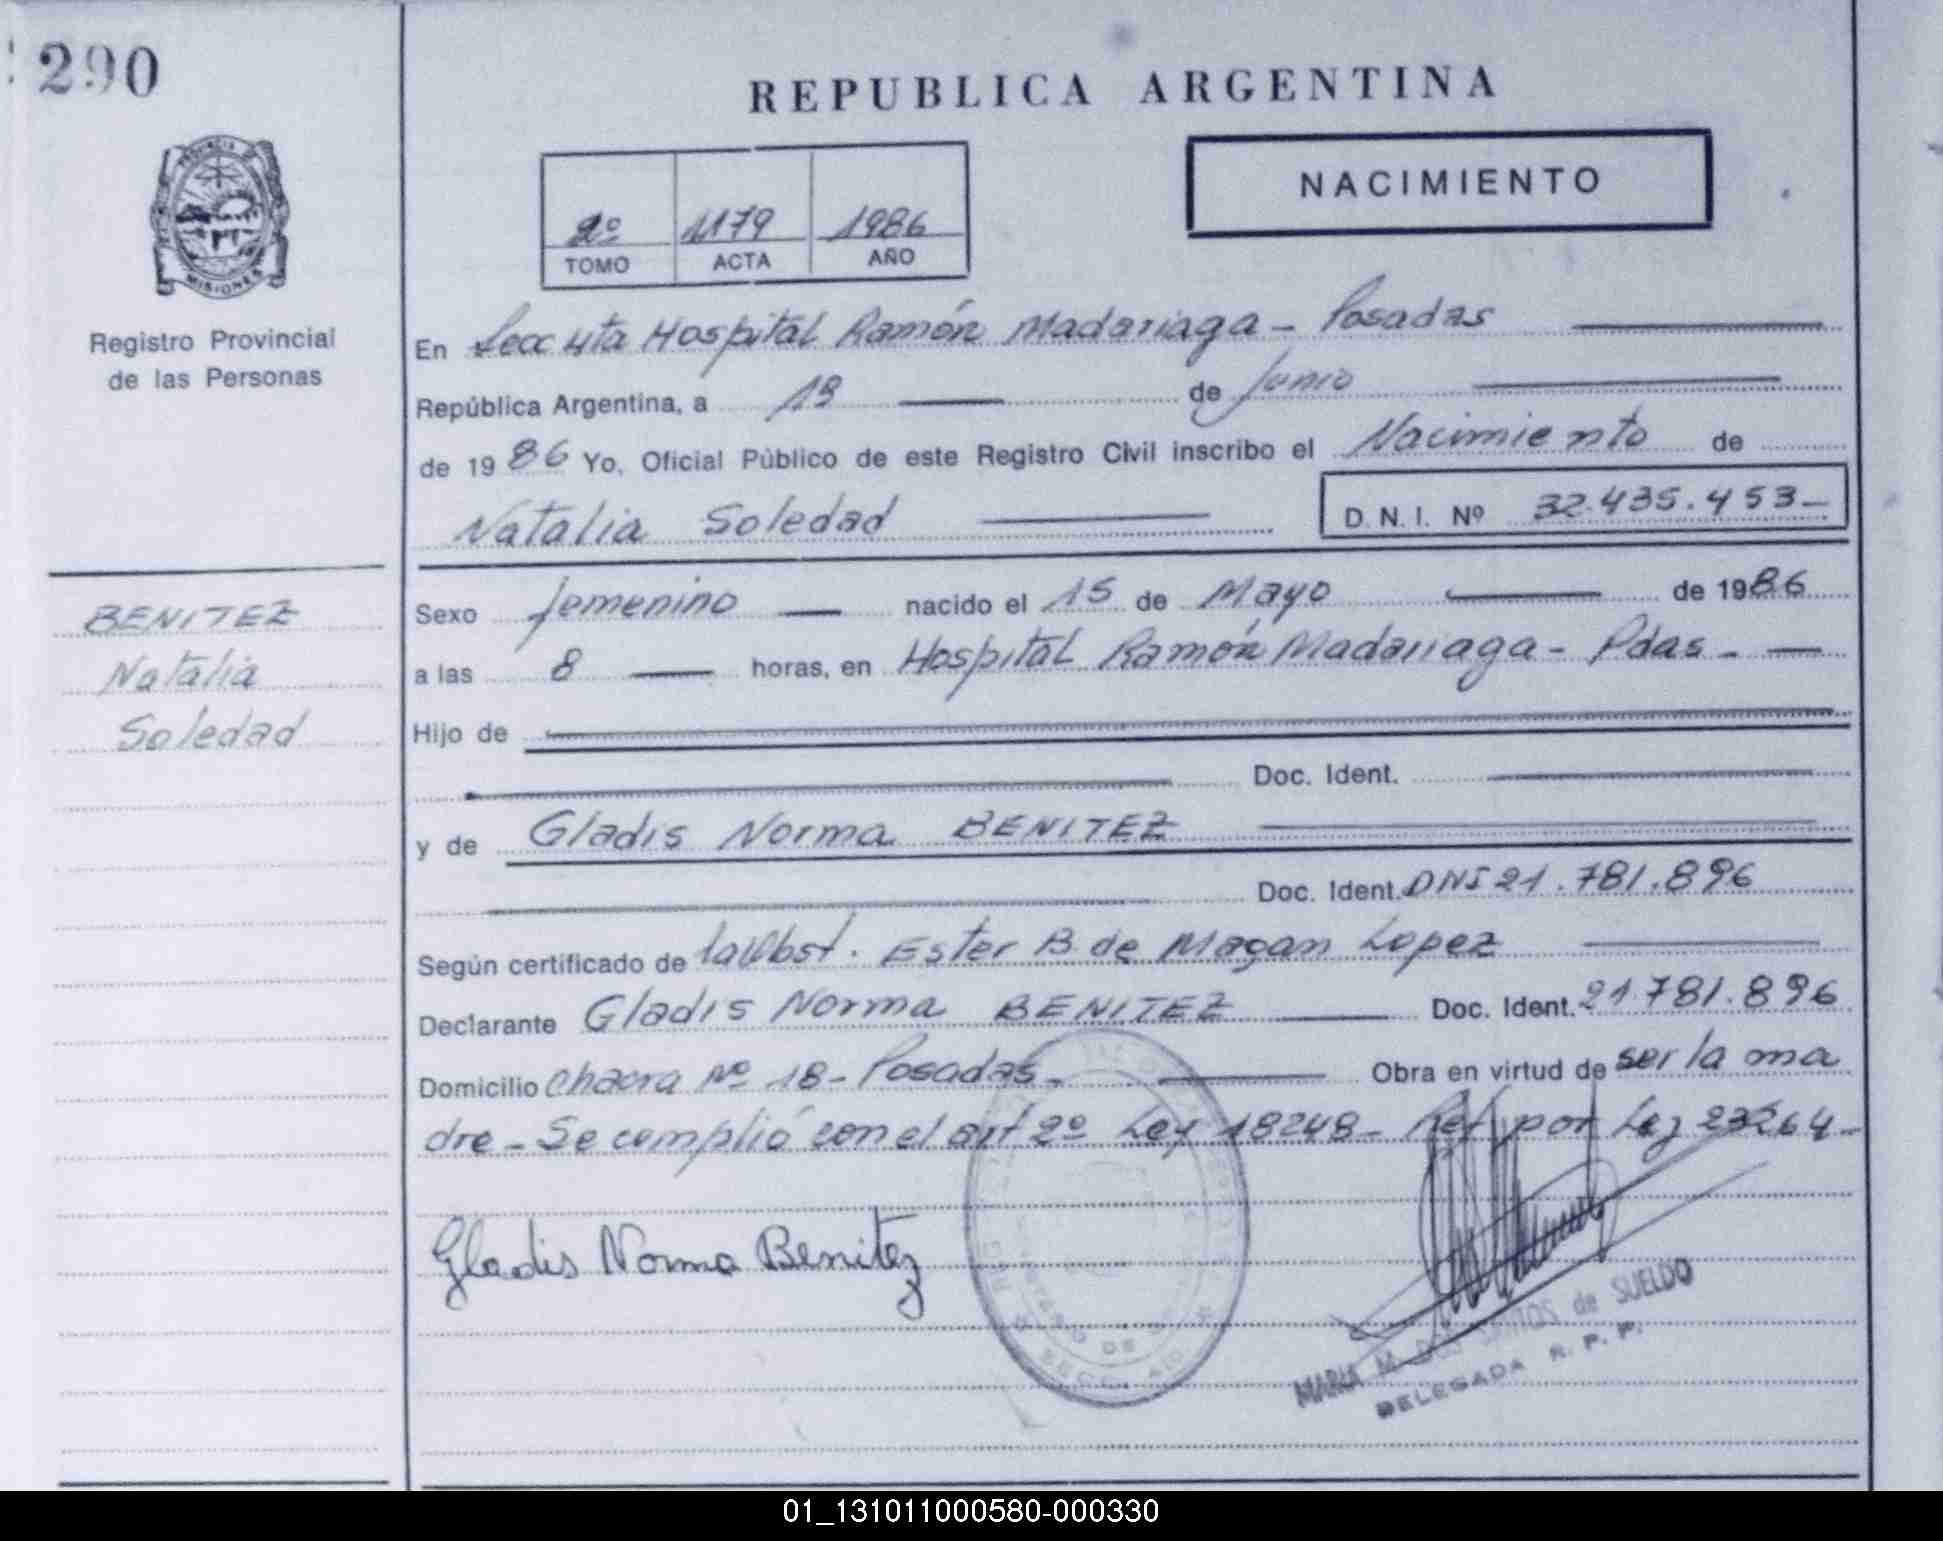 290
REPUBLICA ARGENTINA
NACIMIENTO
2º 1179 1986
TOMO ACTA AÑO
PROVINCIA DE
MISIONES
Registro Provincial
de las Personas
En Secc 4ta Hospital Ramón Madariaga - Posadas
República Argentina, a 19 de Junio
de 1986 Yo, Oficial Público de este Registro Civil inscribo el Nacimiento de
Natalia Soledad
D.N.I. Nº 32.435.453-
BENITEZ
Natalia
Soledad
Sexo femenino nacido el 15 de Mayo de 1986
a las 8 horas, en Hospital Ramón Madariaga - Pdas -
Hijo de
Doc. Ident.
y de Gladis Norma BENITEZ
Doc. Ident. DNI 21.781.896
Según certificado de la Obst. Ester B. de Magan Lopez
Declarante Gladis Norma BENITEZ Doc. Ident. 21.781.896
Domicilio chacra Nº 18 - Posadas - Obra en virtud de ser la ma
dre - Se cumplió con el art 2º Ley 18248 - Ref por Ley 23264 -
Gladis Norma Benitez
MARIA M. DOS SANTOS de SUELDO
DELEGADA R. P. P.
01_131011000580-000330